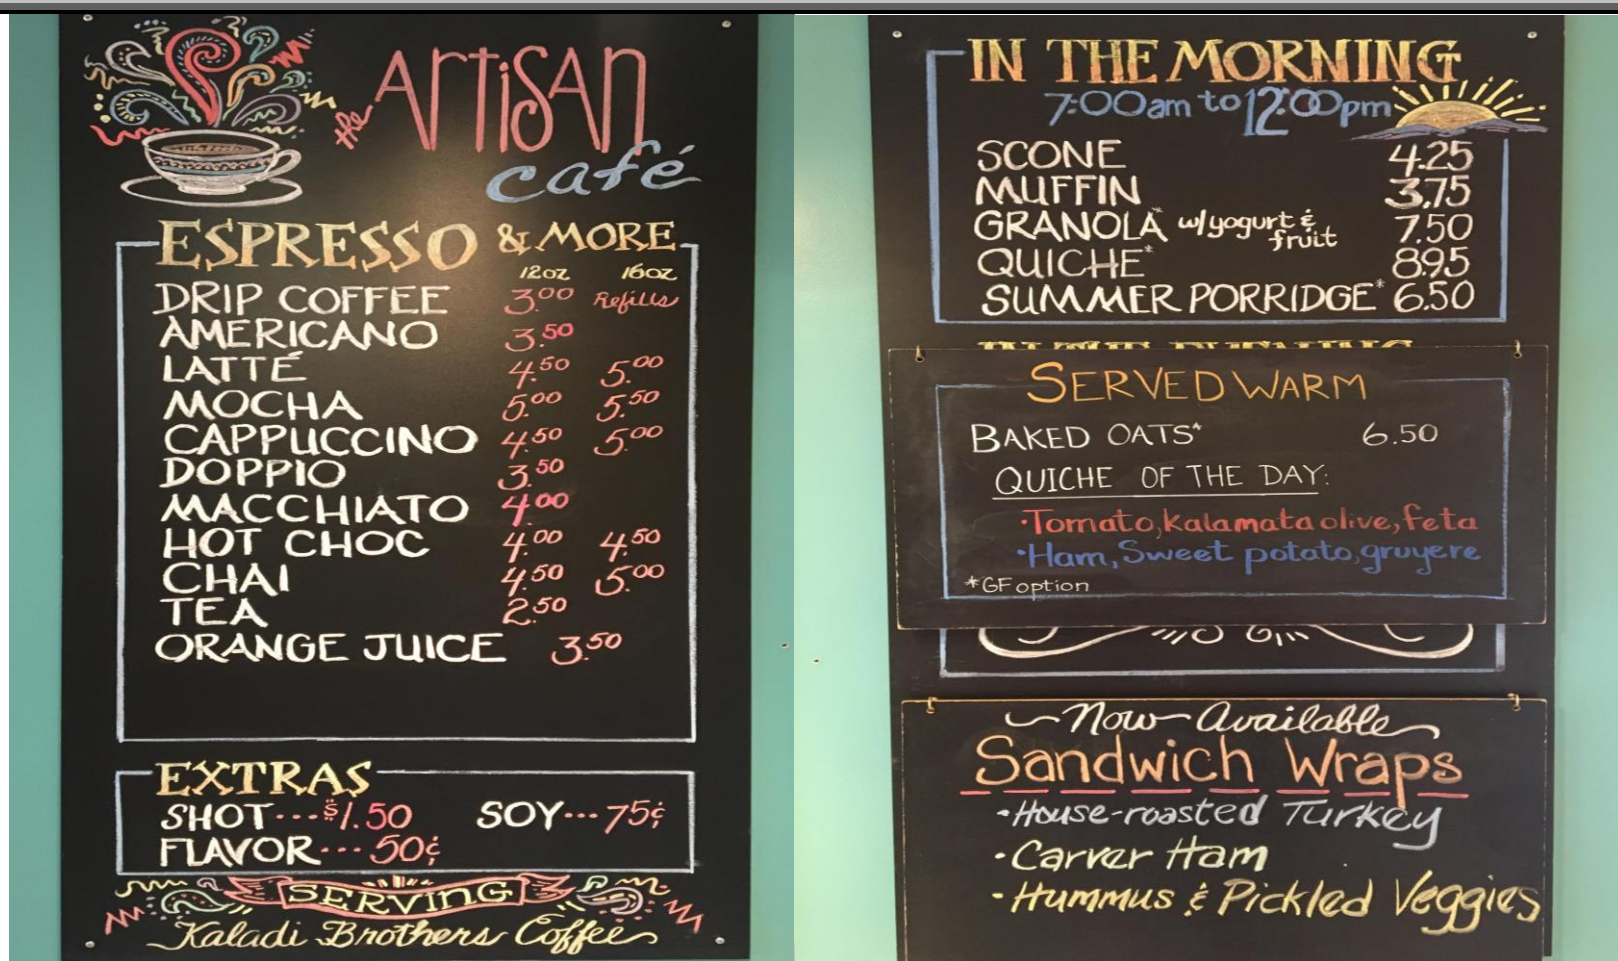 the ARTiSAN
café
ESPRESSO & MORE
12oz 16oz
DRIP COFFEE 3.00 Refills
AMERICANO 3.50
LATTÉ 4.50 5.00
MOCHA 5.00 5.50
CAPPUCCINO 4.50 5.00
DOPPIO 3.50
MACCHIATO 4.00
HOT CHOC 4.00 4.50
CHAI 4.50 5.00
TEA 2.50
ORANGE JUICE 3.50
EXTRAS
SHOT...$1.50 SOY...75¢
FLAVOR...50¢
SERVING
Kaladi Brothers Coffee
IN THE MORNING
7:00am to 12:00pm
SCONE 4.25
MUFFIN 3.75
GRANOLA* w/yogurt & fruit 7.50
QUICHE* 8.95
SUMMER PORRIDGE* 6.50
IN THE EVENING
SERVED WARM
BAKED OATS* 6.50
QUICHE OF THE DAY:
·Tomato, kalamata olive, feta
·Ham, Sweet potato, gruyere
*GF option
Now Available
Sandwich Wraps
·House-roasted Turkey
·Carver Ham
·Hummus & Pickled Veggies